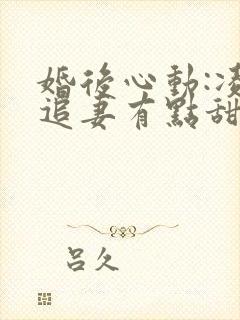 婚後心動:凌
追妻有點甜
呂久